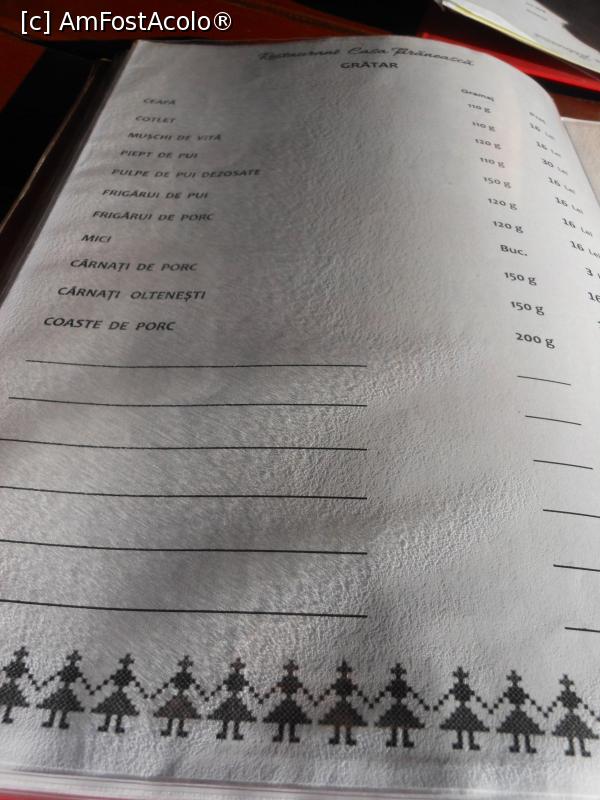 [c] AmFostAcolo®
Restaurant Casa Țărănească
GRĂTAR
Gramaj Preț
CEAFĂ 110 g 16 Lei
COTLET 110 g 16 Lei
MUȘCHI DE VITĂ 120 g 30 Lei
PIEPT DE PUI 110 g 16 Lei
PULPE DE PUI DEZOSATE 150 g 16 Lei
FRIGĂRUI DE PUI 120 g 16 Lei
FRIGĂRUI DE PORC 120 g 16 Lei
MICI Buc. 3
CÂRNAȚI DE PORC 150 g 16
CÂRNAȚI OLTENEȘTI 150 g
COASTE DE PORC 200 g